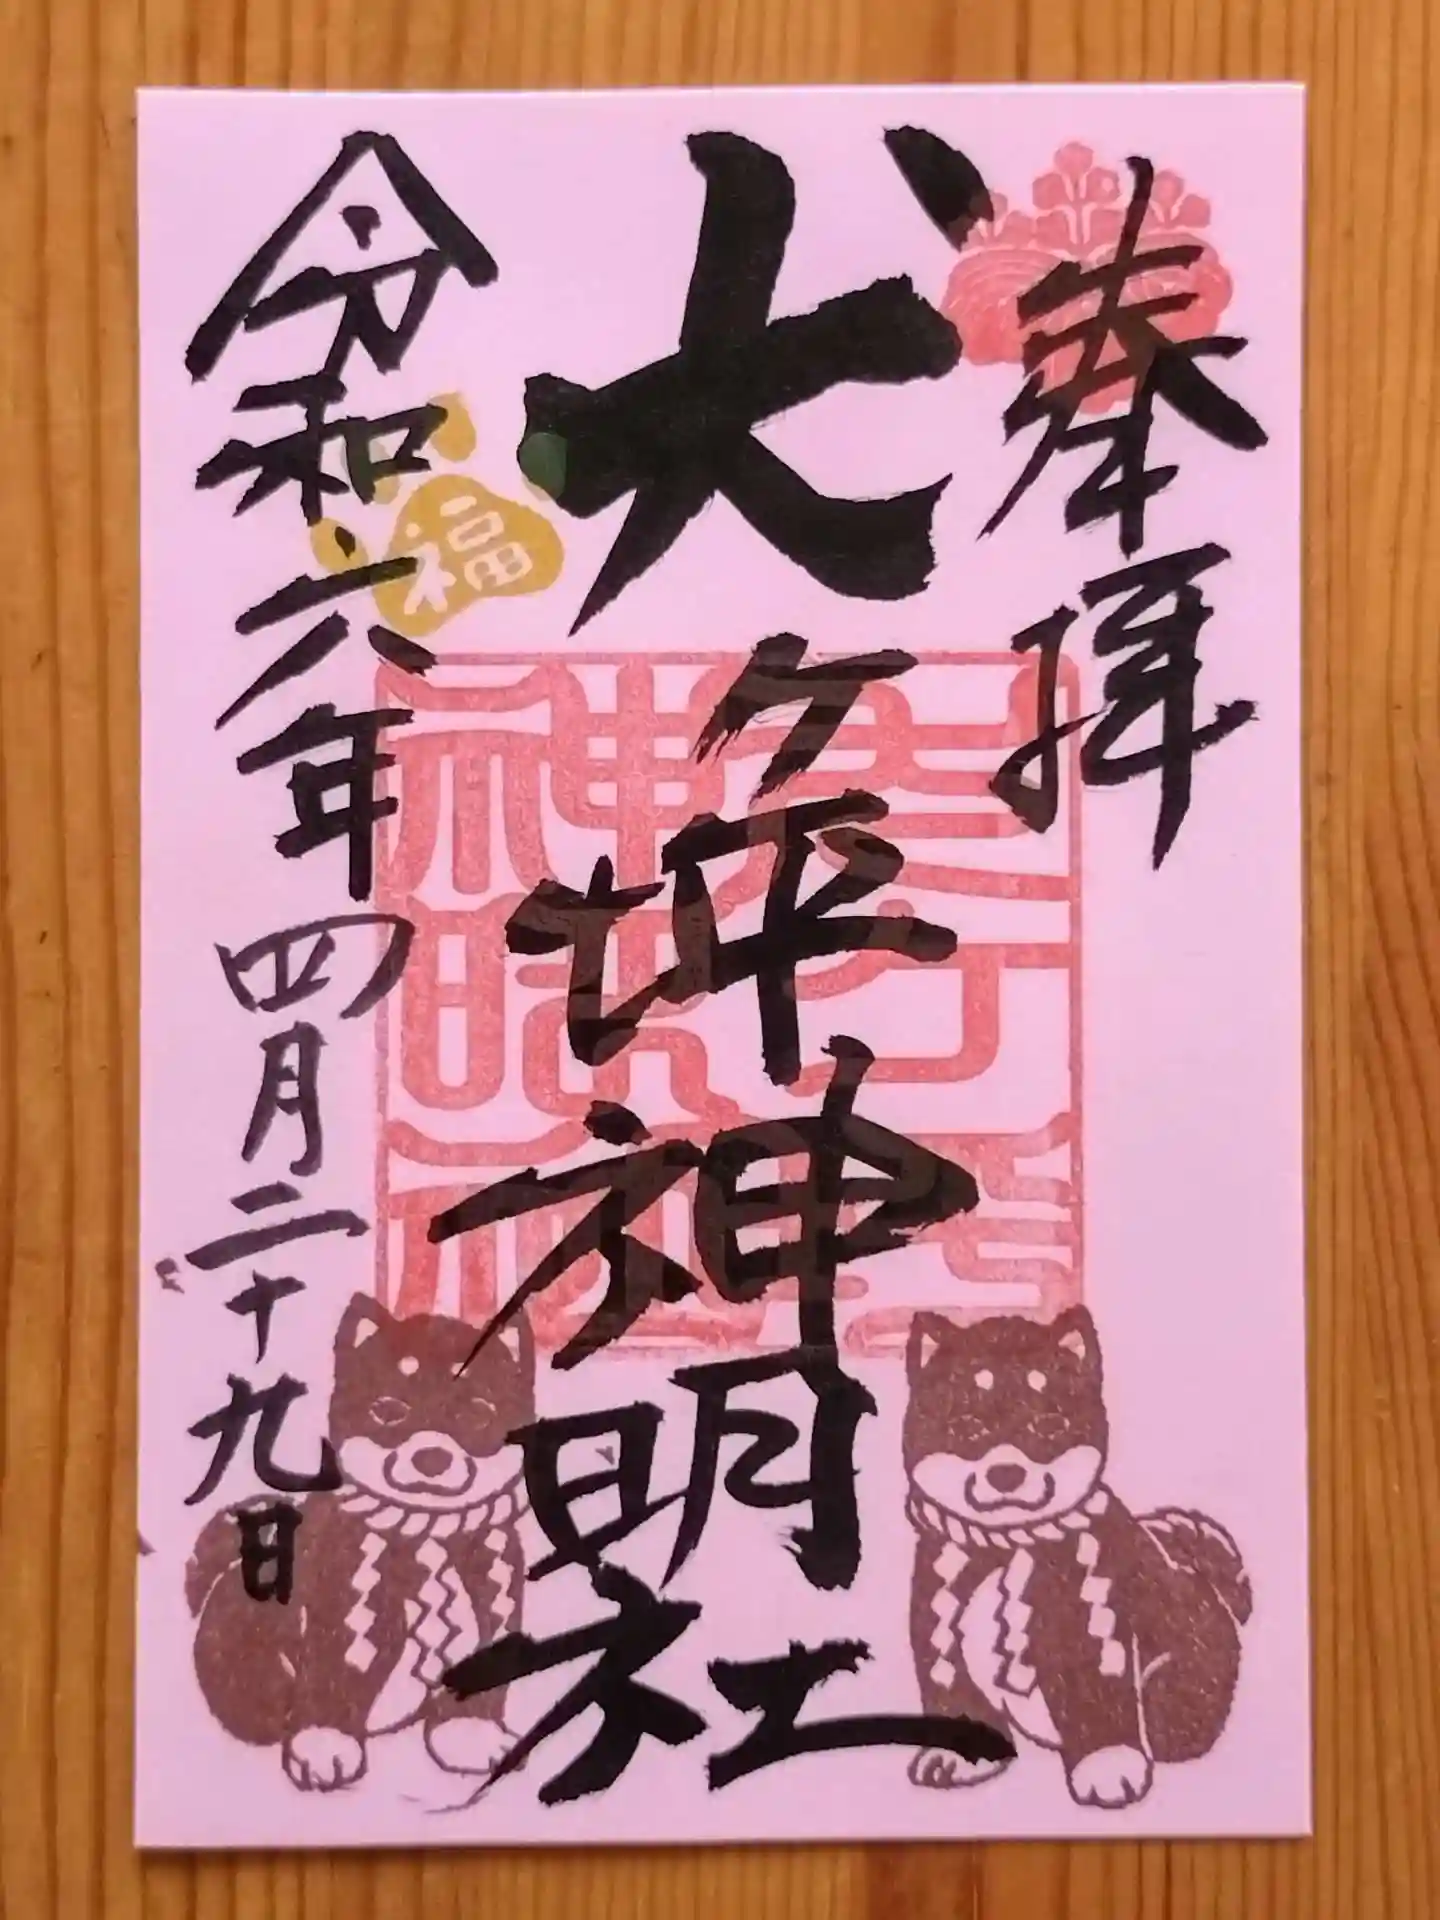 奉拝
犬ケ坪神明社
令和六年四月二十九日
福
神明社